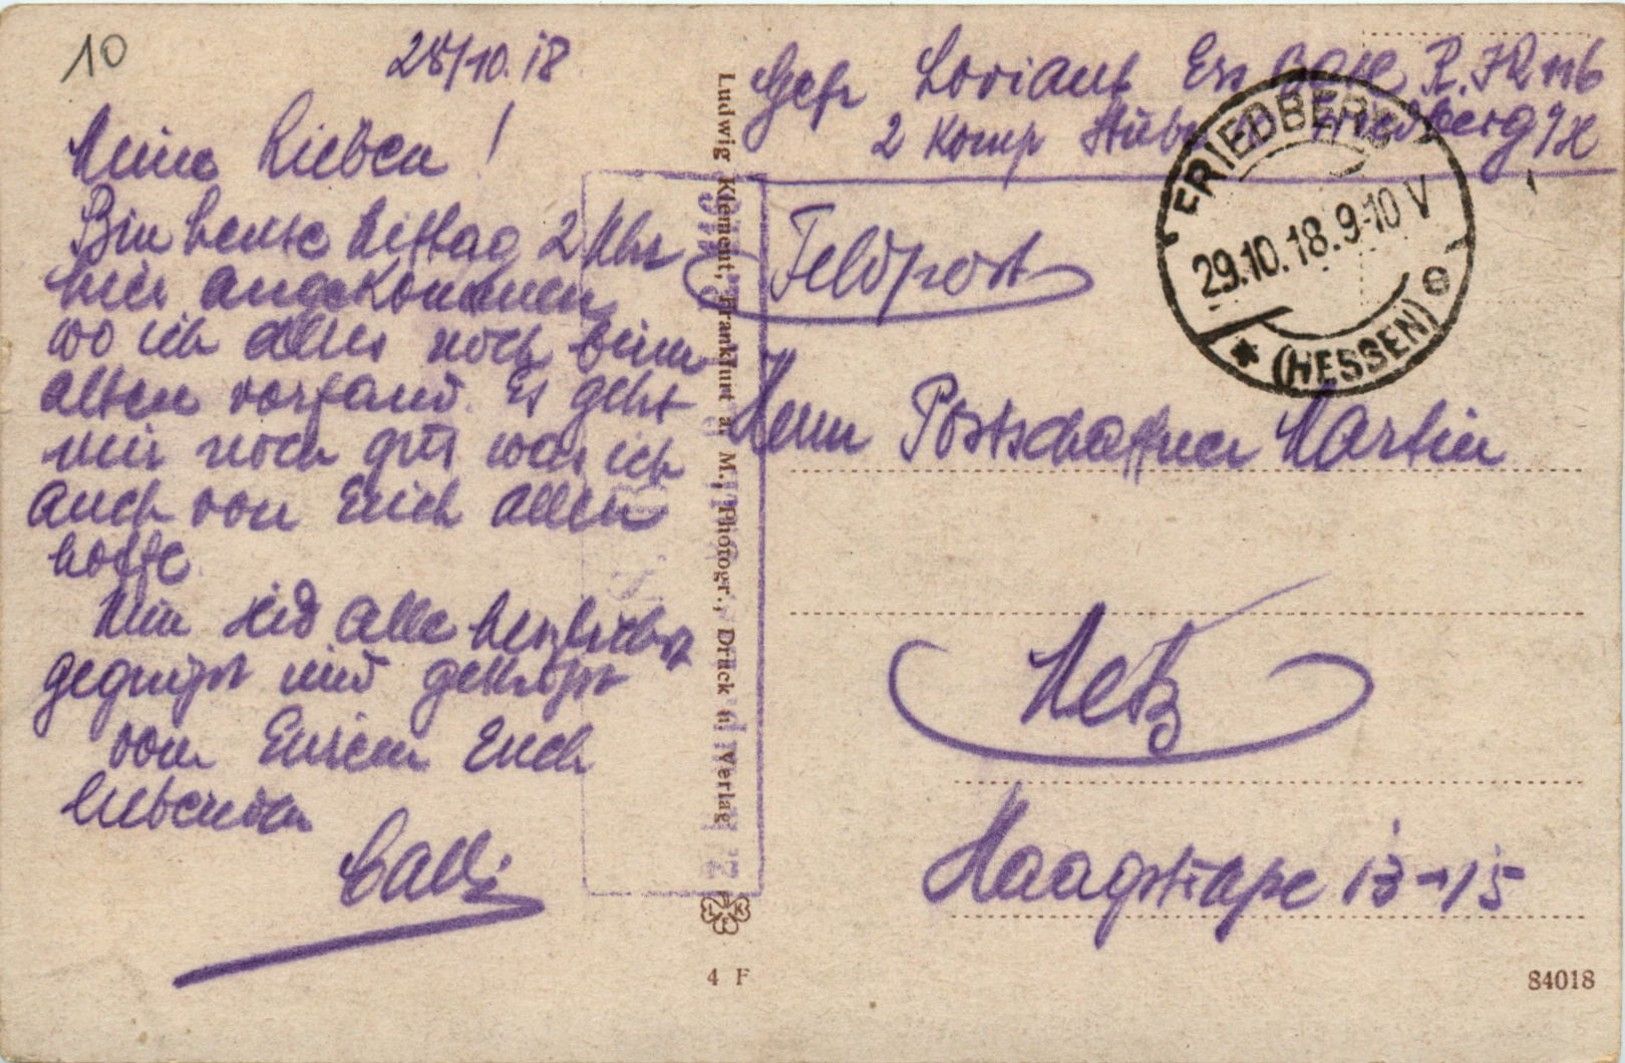 10
28/10.18
Meine Lieben!
Bin heute Mittag 2 Uhr
hier angekommen
wo ich alles noch beim
alten vorfand. Es geht
mir noch gut was ich
auch von Euch allen
hoffe.
Nun seid alle herzlichst
gegrüßt und geküßt
von Eurem Euch
liebenden
Gefr Loriant Ers Batl R.IR 116
2 Komp Friedberg i/H
Feldpost
Herrn Postschaffner Martin
Metz
Haagstraße 13-15
FRIEDBERG
29.10.18.9-10 V
* (HESSEN) e
Ludwig Klement, Frankfurt a. M., Photogr., Druck u. Verlag
L K
4 F
84018